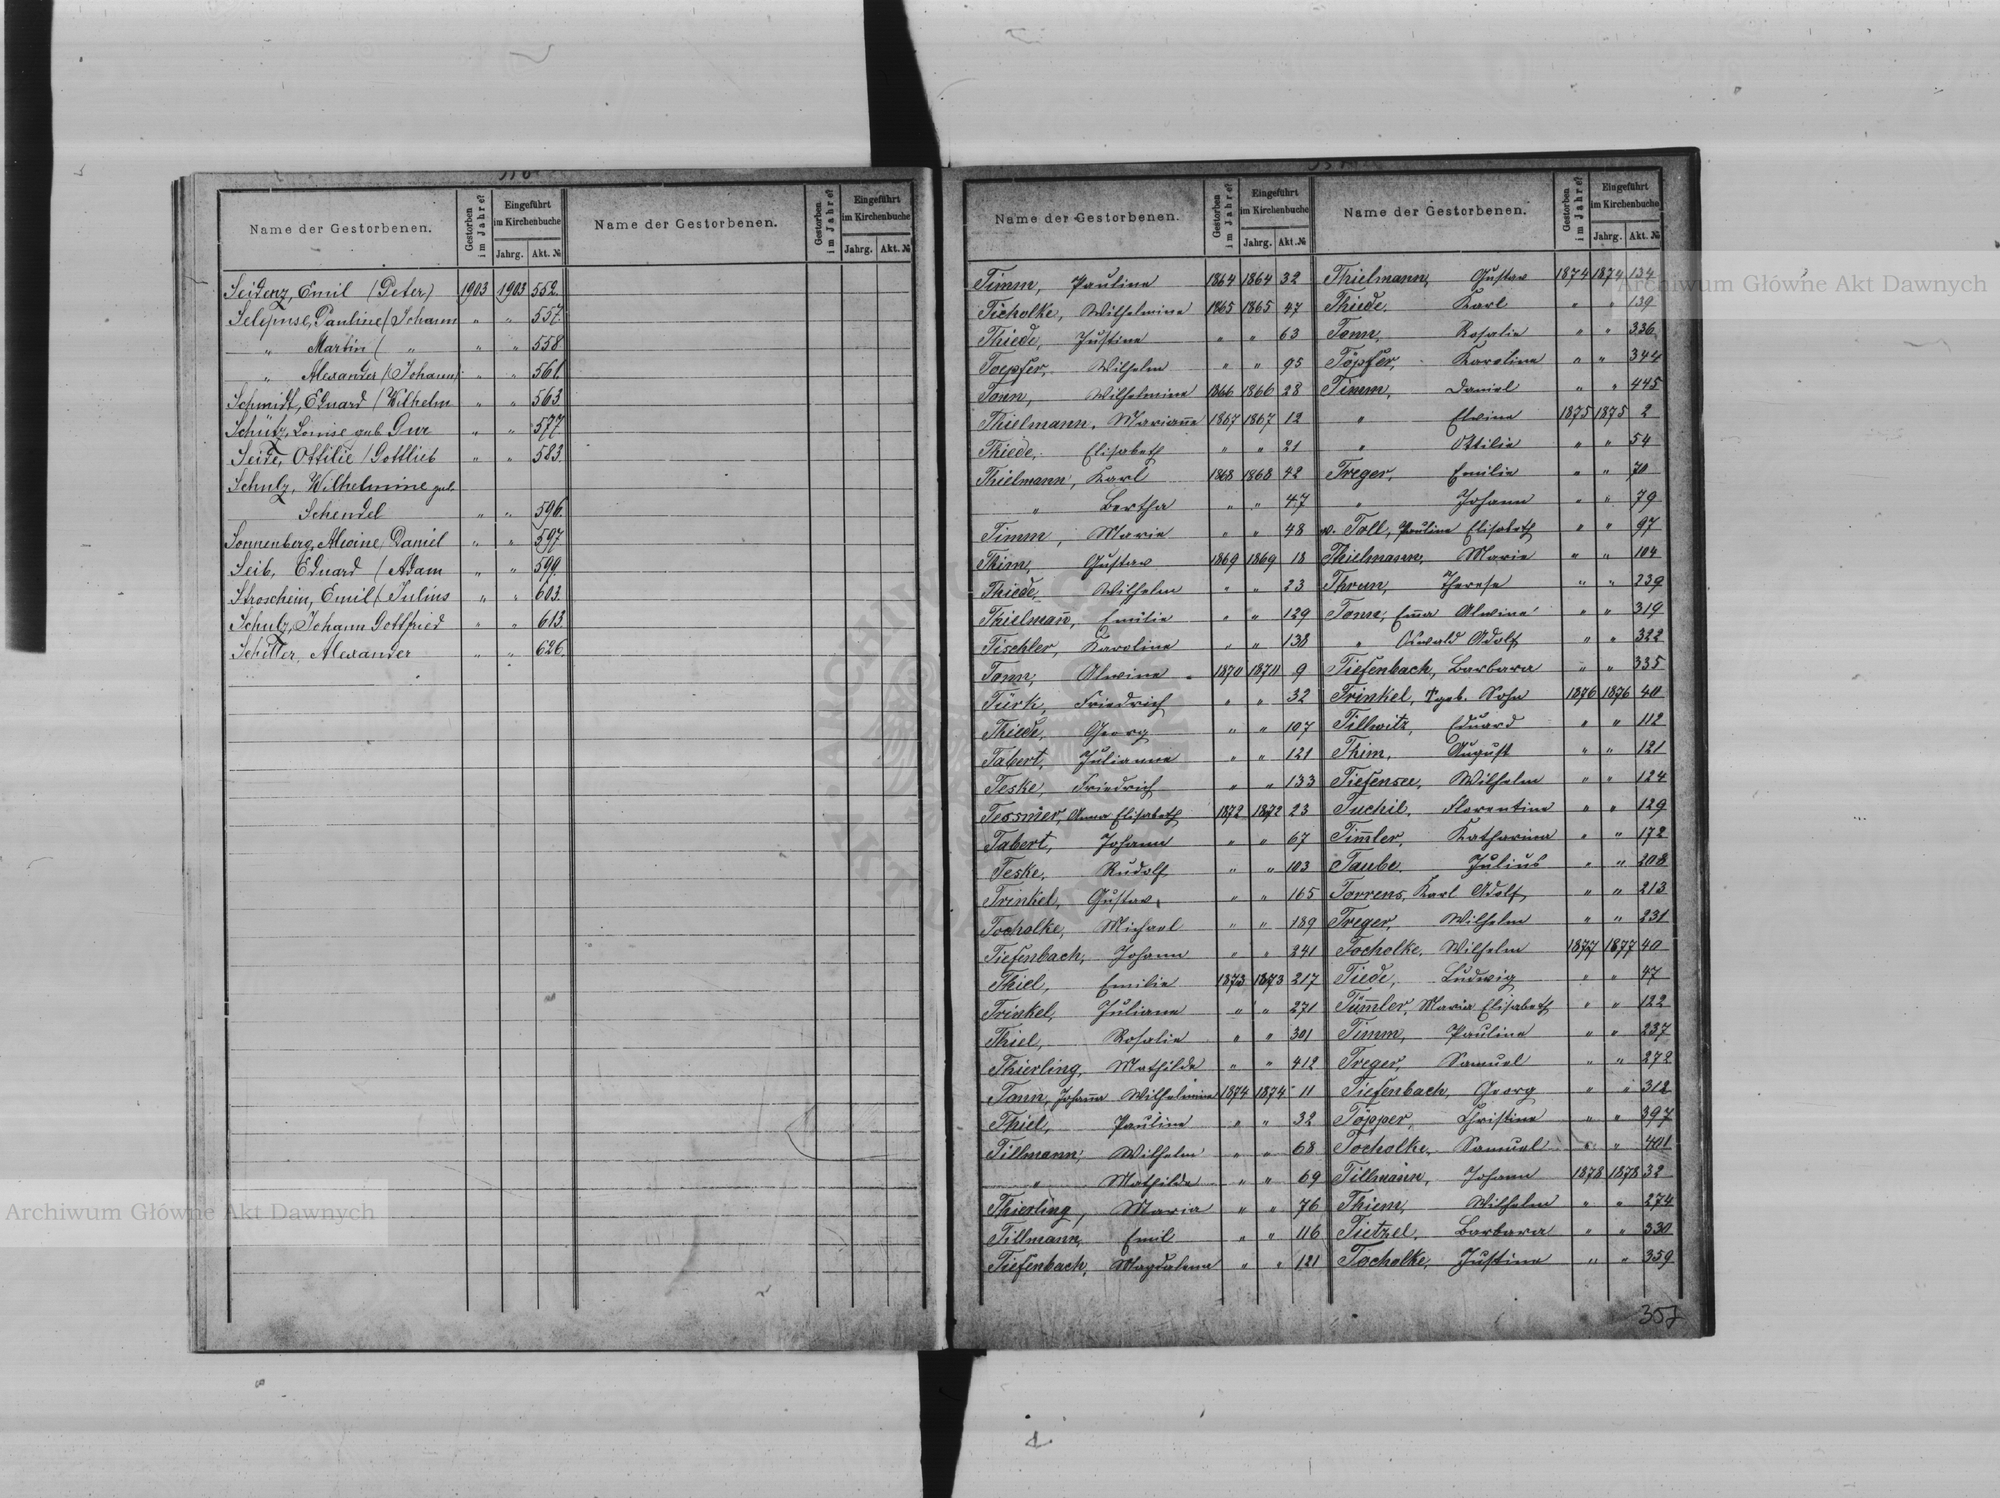 Name der Gestorbenen.
Gestorben im Jahre?
Eingeführt im Kirchenbuche
Jahrg. Akt. №
Name der Gestorbenen.
Gestorben im Jahre?
Eingeführt im Kirchenbuche
Jahrg. Akt. №
Seidenz, Emil (Peter) 1903 1903 552.
Pauline (Johann " " 557.
" Martin ( " " " 558.
" Alexander (Johann) " " 561.
Schmidt, Eduard (Wilhelm " " 563.
Schütz, Louise geb. " " 577.
Seide, Ottilie (Gottlieb " " 583.
Schulz, Wilhelmine geb.
Schendel " " 596.
Sonnenberg, Alwine, Daniel " " 597
Seib, Eduard (Adam " " 599.
Stroschein, Emil (Julius " " 603.
Schulz, Johann Gottfried " " 613.
Schiller, Alexander " " 626.
Name der Gestorbenen.
Gestorben im Jahre?
Eingeführt im Kirchenbuche
Jahrg. Akt. №
Name der Gestorbenen.
Gestorben im Jahre?
Eingeführt im Kirchenbuche
Jahrg. Akt. №
Timm, Pauline 1864 1864 32
Ticholke, Wilhelmine 1865 1865 47
Thiede, Justine " " 63
Toepfer, Wilhelm " " 95
Tonn, Wilhelmine 1866 1866 28
Thielmann, Marianne 1867 1867 12
Thiede, Elisabeth " " 21
Thielmann, Karl 1868 1868 42
" Bertha " " 47
Timm, Marie " " 48
Thim, Gustav 1869 1869 18
Thiede, Wilhelm " " 23
Thielmann, Emilie " " 129
Tischler, Karoline " " 138
Tonn, Alwine 1870 1870 9
Türk, Friedrich " " 32
Thiede, Georg " " 107
Tabert, Julianna " " 121
Teske, Friedrich " " 133
Tessmer, Anna Elisabeth 1872 1872 23
Tabert, Johann " " 67
Teske, Rudolf " " 103
Trinkel, Gustav " " 165
Tocholke, Michael " " 189
Tiefenbach, Johann " " 241
Thiel, Emilie 1873 1873 217
Trinkel, Juliane " " 271
Thiel, Rosalie " " 301
Thierling, Mathilde " " 412
Tonn, Johanna Wilhelmine 1874 1874 11
Thiel, Pauline " " 32
Tillmann, Wilhelm " " 68
" Mathilde " " 69
Thierling, Maria " " 76
Tillmann, Emil " " 116
Tiefenbach, Magdalena " " 121
Thielmann, Gustav 1874 1874 134
Thiede, Karl " " 139
Tonn, Rosalie " " 336
Töpfer, Karoline " " 344
Timm, Daniel " " 445
" Elvine 1875 1875 2
" Ottilie " " 54
Treger, Emilie " " 70
" Johann " " 79
v. Toll, Pauline Elisabeth " " 97
Thielmann, Marie " " 104
Thrun, Therese " " 239
Tonn, Emma Alwine " " 319
" Oswald Adolf " " 322
Tiefenbach, Barbara " " 335
Trinkel, geb. Sohn 1876 1876 40
Tillwitz, Eduard " " 112
Thim, August " " 121
Tiefensee, Wilhelm " " 124
Tuchil, Florentine " " 129
Timmler, Katharina " " 172
Taube, Julius " " 208
Torrens, Karl Adolf " " 213
Treger, Wilhelm " " 231
Tocholke, Wilhelm 1877 1877 40
Tiede, Ludwig " " 47
Tümmler, Maria Elisabeth " " 122
Timm, Pauline " " 237
Treger, Samuel " " 272
Tiefenbach, Georg " " 312
Töpper, Christine " " 397
Tocholke, Samuel " " 401
Tillmann, Johann 1878 1878 32
Thiem, Wilhelm " " 274
Tietzel, Barbara " " 330
Tocholke, Justine " " 359
357
Archiwum Główne Akt Dawnych
Archiwum Główne Akt Dawnych